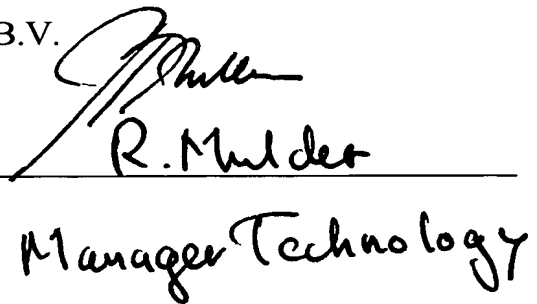 B.V.
R. Mulder
Manager Technology